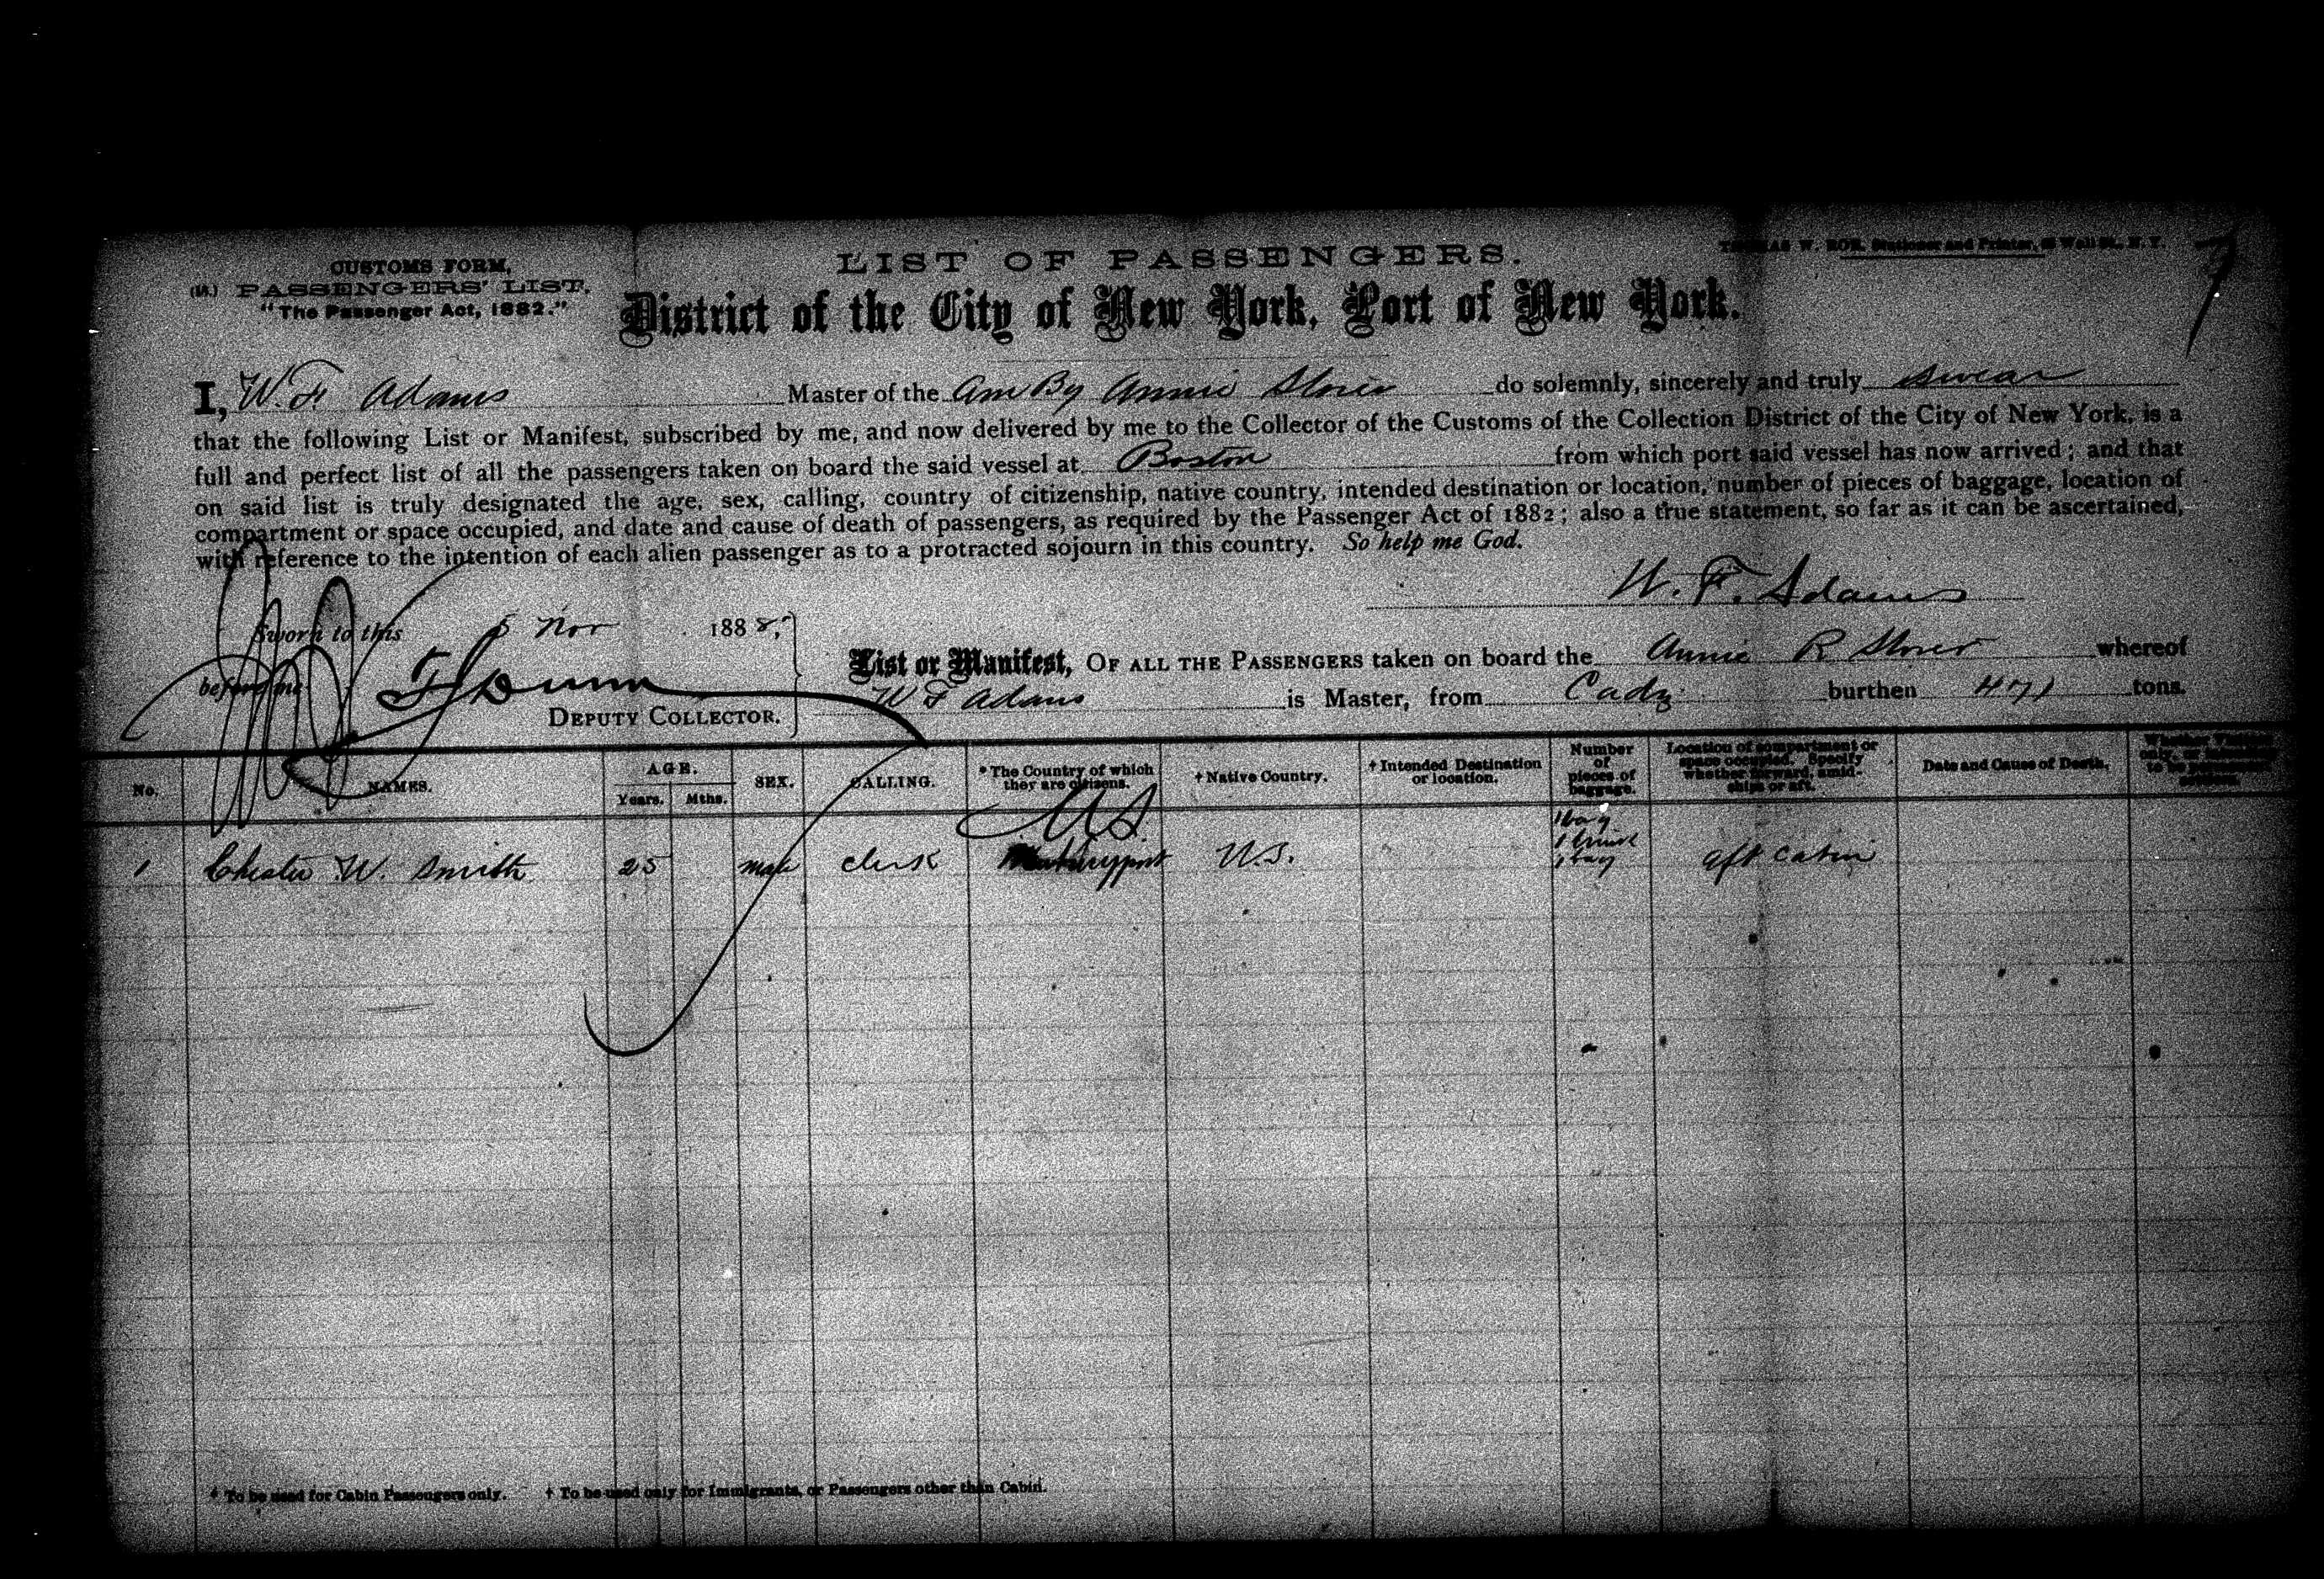 CUSTOMS FORM,
(IA.) PASSENGERS' LIST.
"The Passenger Act, 1882."
LIST OF PASSENGERS.
THOMAS W. ROE, Stationer and Printer, Wall St., N. Y.
District of the City of New York, Port of New York.
I, W. F. Adams Master of the Am Bg Annie Storer do solemnly, sincerely and truly swear
that the following List or Manifest, subscribed by me, and now delivered by me to the Collector of the Customs of the Collection District of the City of New York, is a
full and perfect list of all the passengers taken on board the said vessel at Boston from which port said vessel has now arrived; and that
on said list is truly designated the age, sex, calling, country of citizenship, native country, intended destination or location, number of pieces of baggage, location of
compartment or space occupied, and date and cause of death of passengers, as required by the Passenger Act of 1882; also a true statement, so far as it can be ascertained,
with reference to the intention of each alien passenger as to a protracted sojourn in this country. So help me God.
W. F. Adams
Sworn to this 5 Nov 1888,
before me
DEPUTY COLLECTOR.
List or Manifest, OF ALL THE PASSENGERS taken on board the Annie R Storer whereof
W F Adams is Master, from Cadz burthen 471 tons.
No. NAMES. AGE. Years. Mths. SEX. CALLING. * The Country of which they are citizens. † Native Country. † Intended Destination or location. Number of pieces of baggage. Location of compartment or space occupied. Specify whether forward, amidships or aft. Date and Cause of Death.
US
1 Chester W. Smith 25 male clerk U.S. 1 bag 1 trunk 1 bag aft cabin
* To be used for Cabin Passengers only. † To be used only for Immigrants, or Passengers other than Cabin.